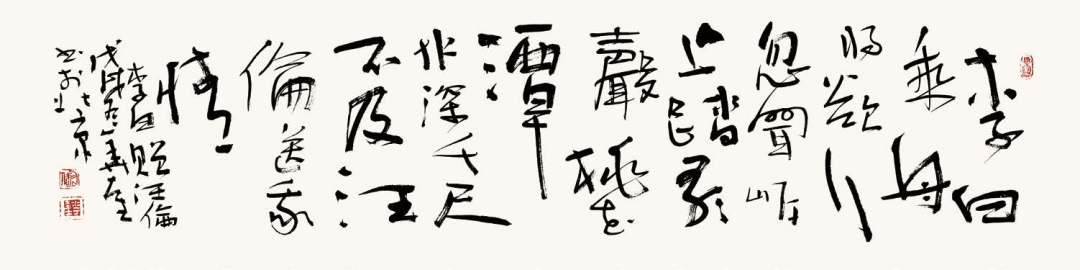 李白
乘舟
將欲行
忽聞岸
上踏歌
聲桃花
潭
水深千尺
不及汪
倫送我
情
李白贈汪倫
戊戌冬
书於